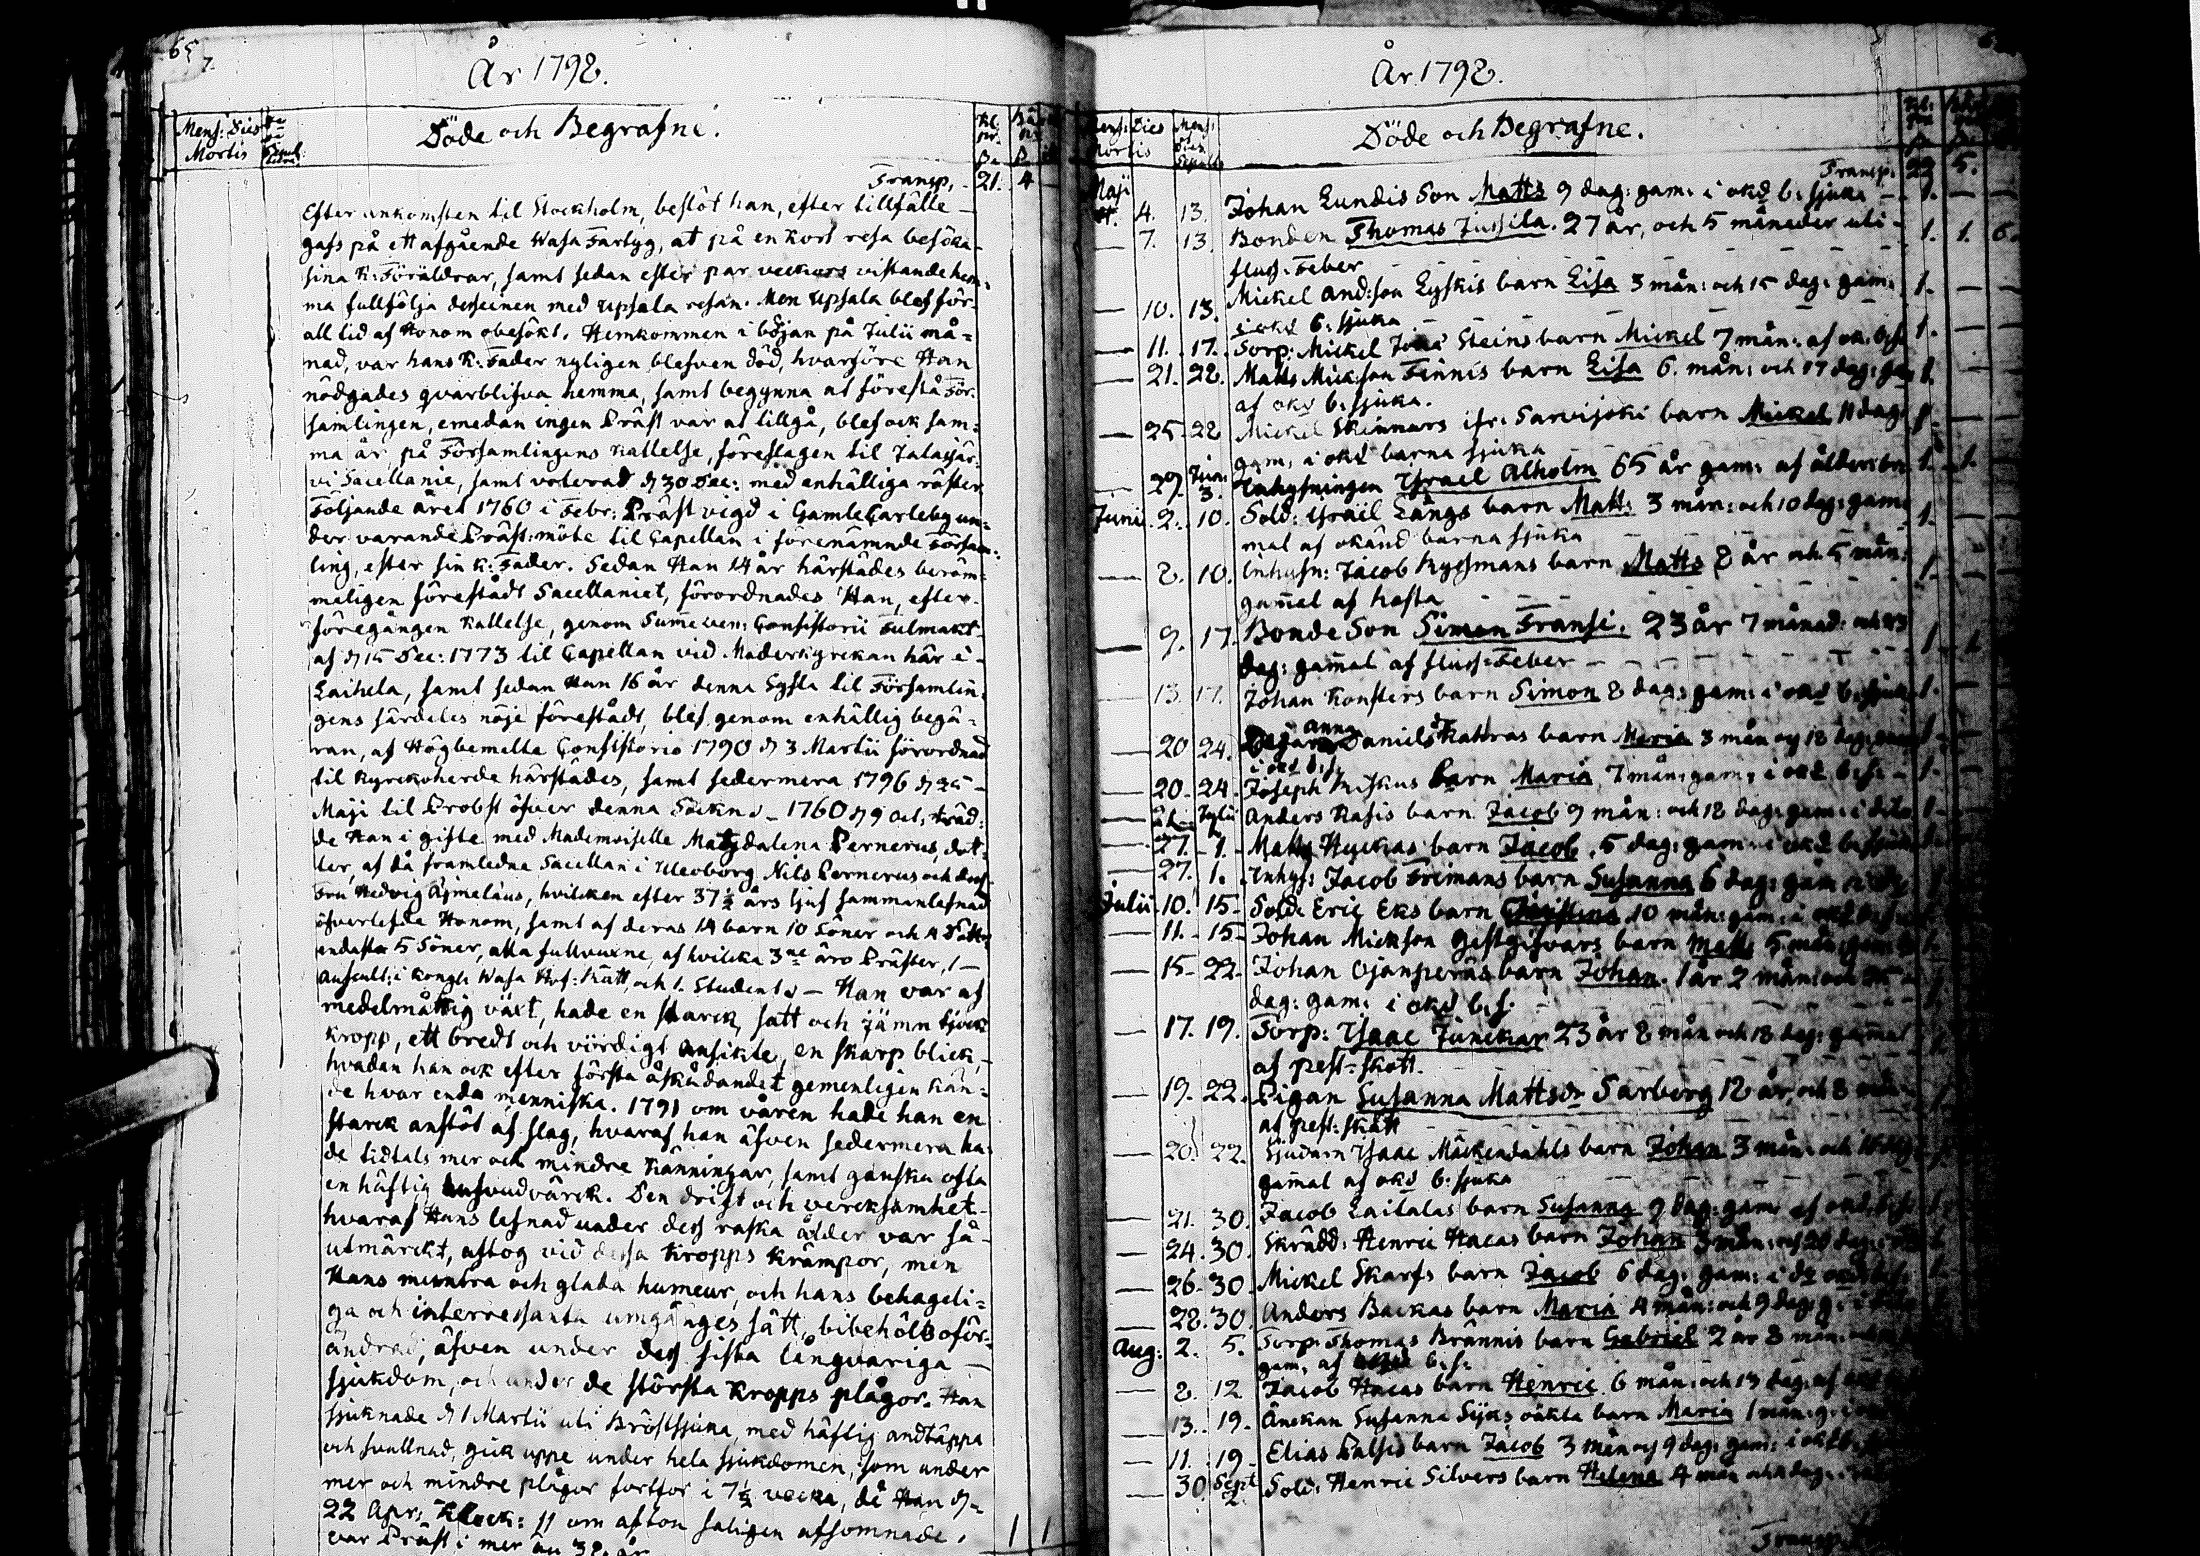 65
7.
År 1798.
Mens: Dies
Mortis
Döde och Begrafne.
Kl.
Transp. 21. 4
Efter ankomsten til Stockholm, beslöt han, efter tillfälle
gafs på ett afgående Wasa Fartyg, at på en kort resa besöka
sina K: Föräldrar, samt sedan efter par veckors vistande hem-
ma fullfölja desseinen med Upsala resan. Men Upsala blef för
all tid af Honom obesökt. Hemkommen i början på Julii må-
nad, var hans K: Fader nyligen blefven död, hvarföre Han
nödgades qvarblifva hemma, samt begynna at förestå För-
samlingen, emedan ingen Präst var at tillgå, blef ock sam-
ma år, på Församlingens kallelse, föreslagen til Jalasjär-
vi Sacellanie, samt voterad d 30 Dec: med enhälliga röster
Följande året 1760 i Febr: Präst vigd i Gamle Carleby un-
der varande Präst: möte til Capellan i förenämnde Försam-
ling, efter sin K: Fader. Sedan Han 14 år härstädes beröm-
meligen förestådt Sacellaniet, förordnades Han, efter
föregången kallelse, genom Consistorii Fulmakt
af d 15 Dec: 1773 til Capellan vid Moderkyrckan här i
Laihela, samt sedan Han 16 år denna Sysla til Församlin-
gens särdeles nöje förestådt, blef genom enhällig begä-
ran, af Högbemelta Consistorio 1790 d 3 Martii förordnad
til Kyrckoherde härstädes, samt sedermera 1796 d 25
Maji til Probst öfver denna Sockn. 1760 d 9 Oct: träd-
de Han i gifte med Mademoiselle Magdalena Pernerus, dot-
ter, af då framledne Sacellan i Uleoborg Nils Pernerus och dess
Fru Hedvig Äjmeläus, hvilcken efter 37 ½ års ljuf sammanlefnad
öfverlefde Honom, samt af deras 14 barn 10 Söner och 4 Döttr
endast 5 Söner, alla fullvuxne, af hvilcka 3ne äro Präster, 1
Auscult: i Kongl. Wasa Hof: Rätt, och 1. Student. Han var af
medelmåttig växt, hade en starck, satt och jämn tjock
kropp, ett bredt och vördigt ansikte, en skarp blick,
hvadan han ock efter första åskådandet gemenligen kän-
de hvar enda menniska. 1791 om våren hade han en
starck anstöt af slag, hvaraf han äfven sedermera ha-
de tidtals mer och mindre känningar, samt ganska ofta
en häftig hufvudvärck. Den drift och vercksamhet
hvaraf Hans lefnad under dess raska ålder var så
utmärckt, aftog vid dessa kropps krämpor, men
Hans muntra och glada humeur, och hans behageli-
ga och interressanta umgänges sätt, bibehölts oför-
ändrad, äfven under dess sista långvariga
sjukdom, och under de största kropps plågor. Han
sjuknade d 1 Martii uti Bröstsjuka, med häftig andtäppa
och svullnad, gick uppe under hela sjukdomen, som under
mer och mindre plågor fortfor i 7 ½ vecka, då Han d
22 Apr: Klock: 11 om afton saligen afsomnade.
var Präst i mer än 38. år
År 1798.
Mens: Dies
Mortis
Döde och Begrafne.
Transp: 22 5.
Maji 4. 13. Johan Lundis Son Matts 9 dag: gam: i okd b: sjuka 1.
7. 13. Bonden Thomas Jussila. 27 år, och 5 månader uti 1. 1. 6.
fluss-Feber
10. 13. Mickel And:son Lyskis barn Lisa 3 mån: och 15 dag: gam: 1.
i okd b: sjuka
11. 17. Torp: Mickel Steins barn Mickel 7 mån: af 1.
21. 22. Matts Mickson Finnis barn Lisa 6. mån: och 17 dag: 1.
af okd b: sjuka.
25 22 Mickel Skinnars ifr: Sarvijoki barn Mickel 11 dag 1
gam: i okd barna sjuka
29 Jun: 3. Inhysningen Israel Alholm 65 år gam: af ålder 1. 1.
Junii 2. 10. Sold: Israel Långs barn Matts 3 mån: och 10 dag: gam- 1.
mal af okänd barna sjuka
8. 10. Inhysn: Jacob Rygsmans barn Matts 8 år och 5 mån: 1.
gamal af hosta
9. 17. Bonde Son Simon Fransi. 23 år 7 månad: och 23 1. 1
dag: gamal af fluss-Feber
13. 17. Johan Konsters barn Simon 8 dag: gam: i okd b: sjuk 1.
20 24. anna Daniels dr Kahras barn Maria 3 mån och 18 dag: 1
i okd b: s.
20. 24. Joseph barn Maria 7 mån: gam: i okd b: s: 1.
Julii 1. Anders Rasis barn Jacob 9 mån: och 18 dag: gam: i dito 1
27. 1. Matts Hyckas barn Jacob. 5 dag: gam: i okd b: sjuk
27. 1. Inhys: Jacob Frimans barn Susanna 6 dag: gam
Julii 10. 15. Sold: Eric Eks barn Christina 10 mån: gam: i okd
11. 15. Johan Mickson Gestgifvars barn Matts 5 mån: gam
15. 22. Johan Ojanperäs barn Johan. 1 år 2 mån: och 25
dag: gam: i okd b: s:
17. 19. Torp: Isaac Junckar 23 år 8 mån och 18 dag: gamal
af pest-skott.
19. 22. Pigan Susanna Mattsdr Sarberg 12 år, och 8 mån
af pest: skått
20. 22. Isaac Mäckendahls barn Johan 3 mån: och
gamal af okd b: sjuka
21. 30. Jacob Laitalas barn Susanna 9 dag: gam: af okd b: s:
24. 30. Skrädd: Henric Hacas barn Johan 3 mån: och 20 dag:
26. 30. Mickel Skarfs barn Jacob 6 dag: gam: i
28. 30. Anders Backas barn Maria 4 mån: och 9 dag: g: i
Aug: 2. 5. Torp: Thomas Brännis barn Gabriel 2 år 8 mån:
gam: af okd b: s:
8. 12 Jacob Hacas barn Henric 6 mån: och 13 dag: af
13. 19. Änckan Susanna Syks oäkta barn Maria 1 mån: g:
11. 19. Elias Palsis barn Jacob 3 mån och 9 dag: gam: i okd
30 Sept 2. Sold: Henric Silvers barn Helena 4 mån
Transp